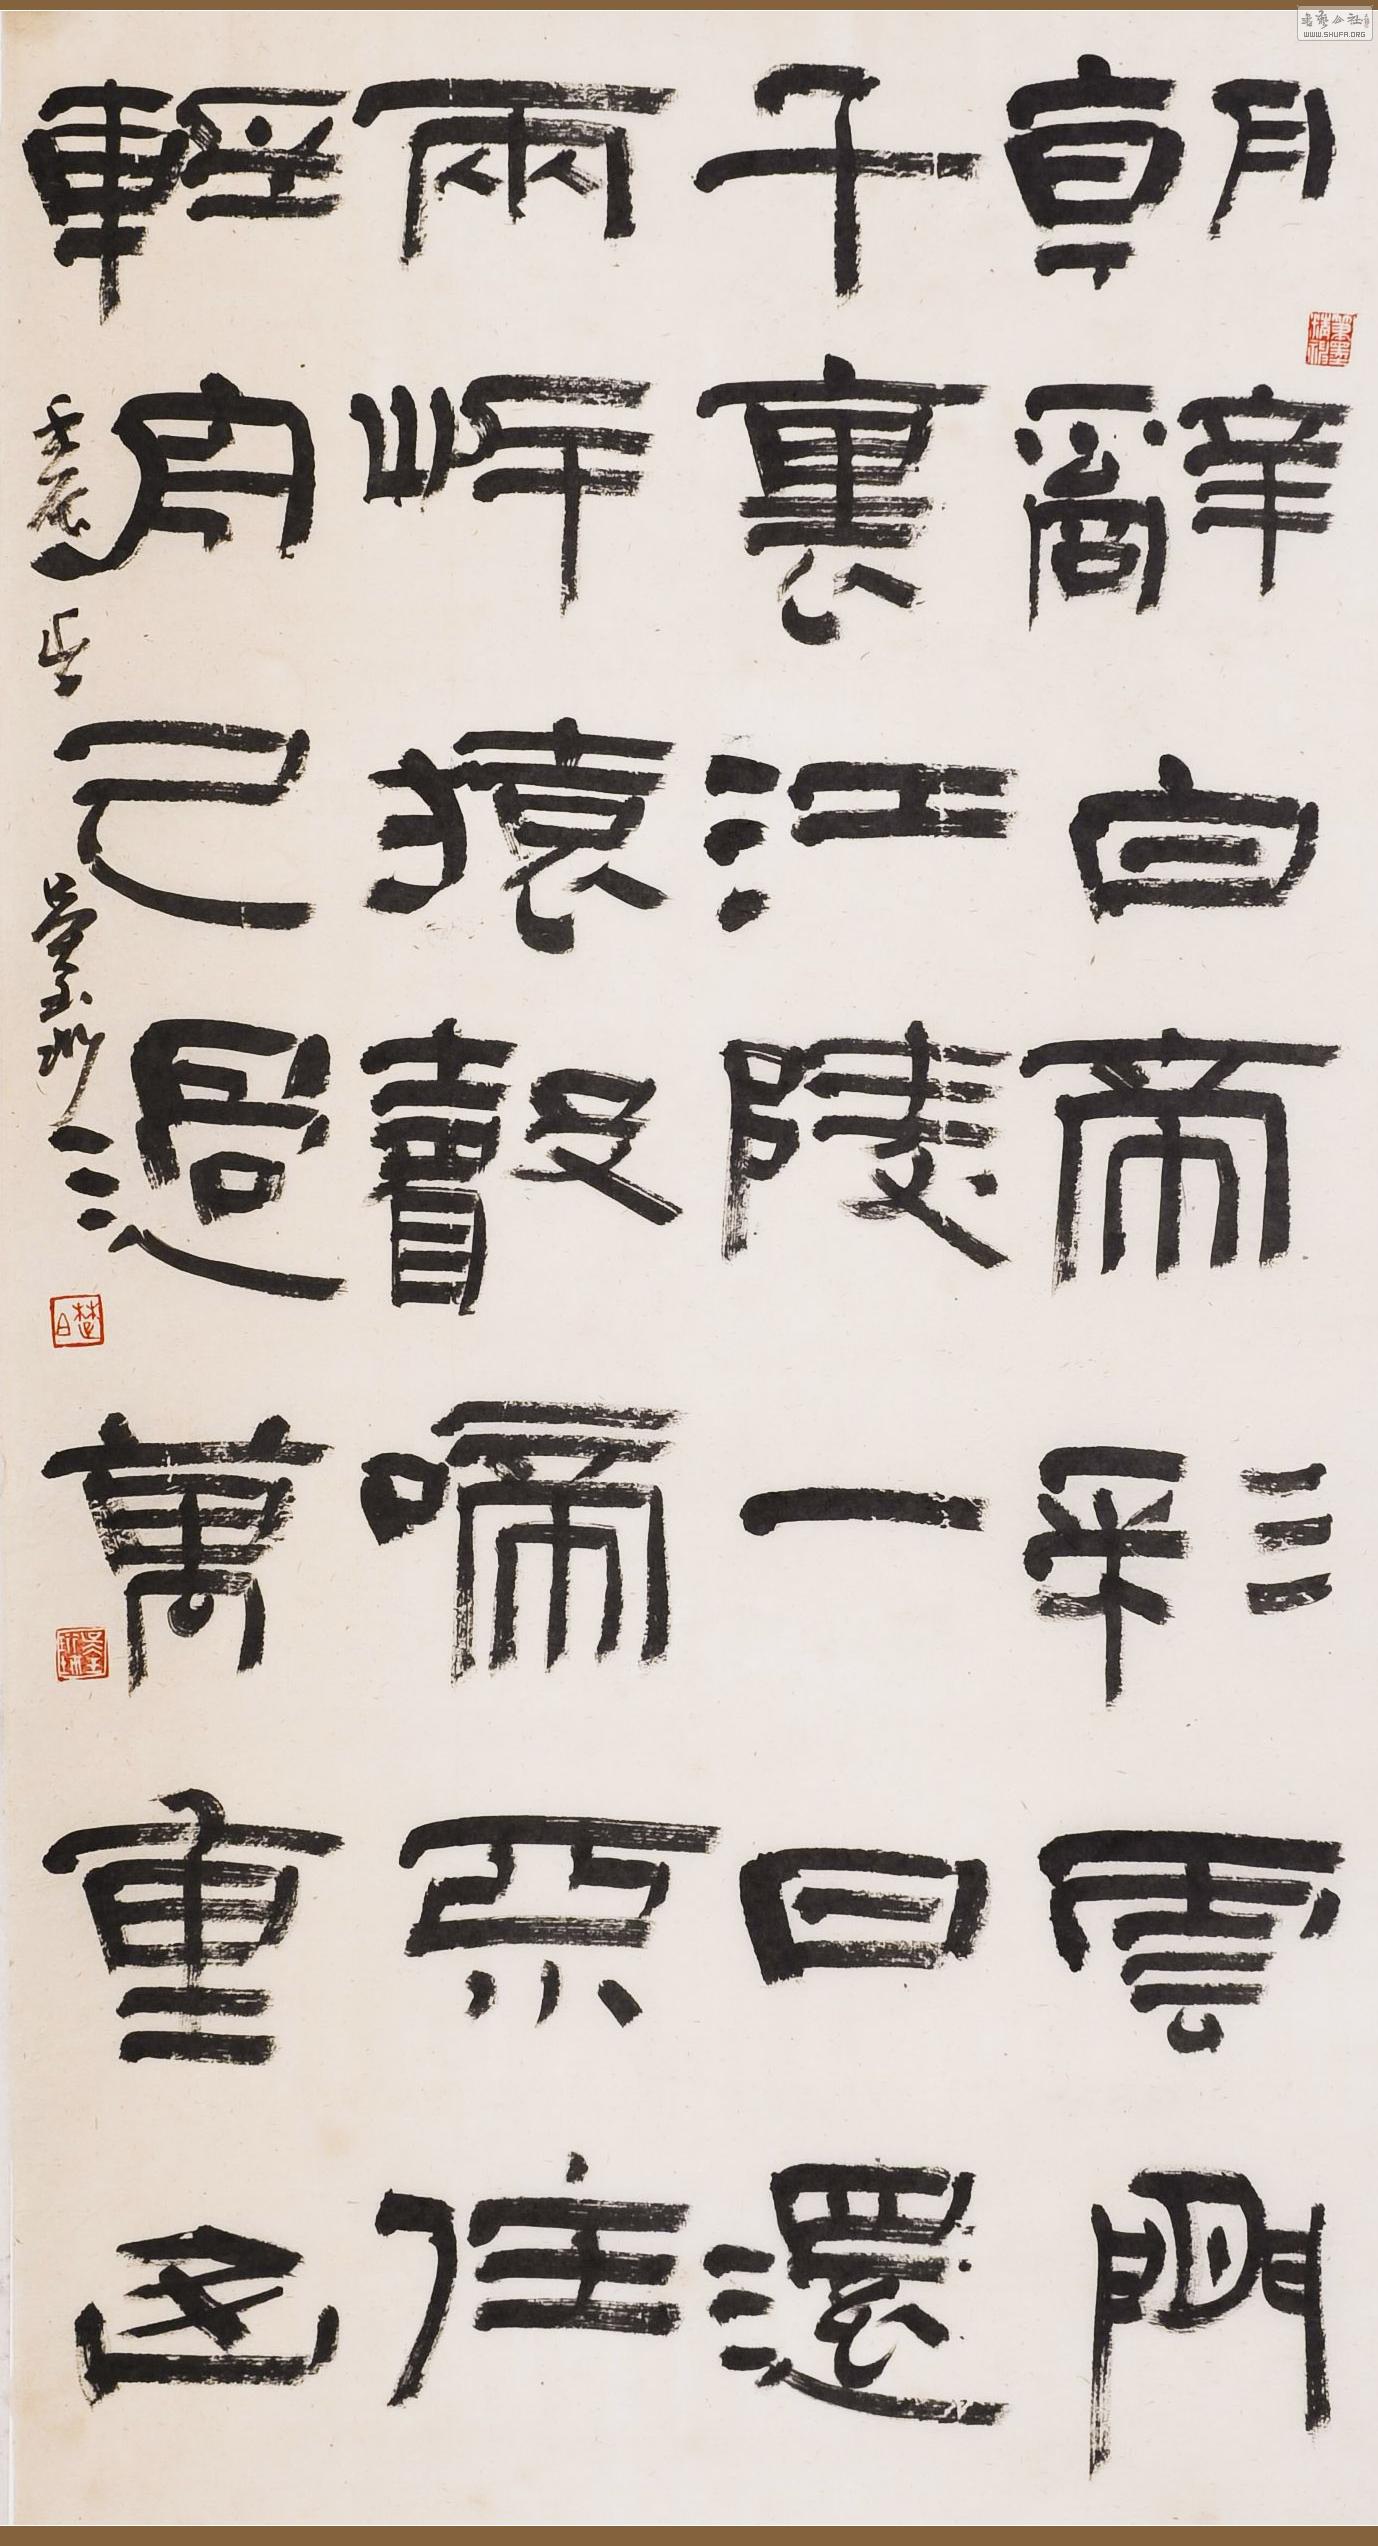 朝辭白帝彩雲間
千裏江陵一日還
兩岸猿聲啼不住
輕舟已過萬重山
壬辰
吳玉
WWW.SHUFA.ORG